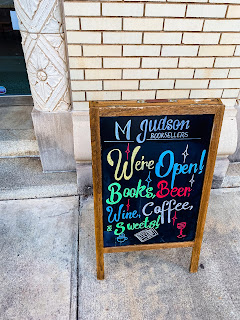 M Judson
BOOKSELLERS
We're Open!
Books, Beer,
Wine, Coffee,
& Sweets!